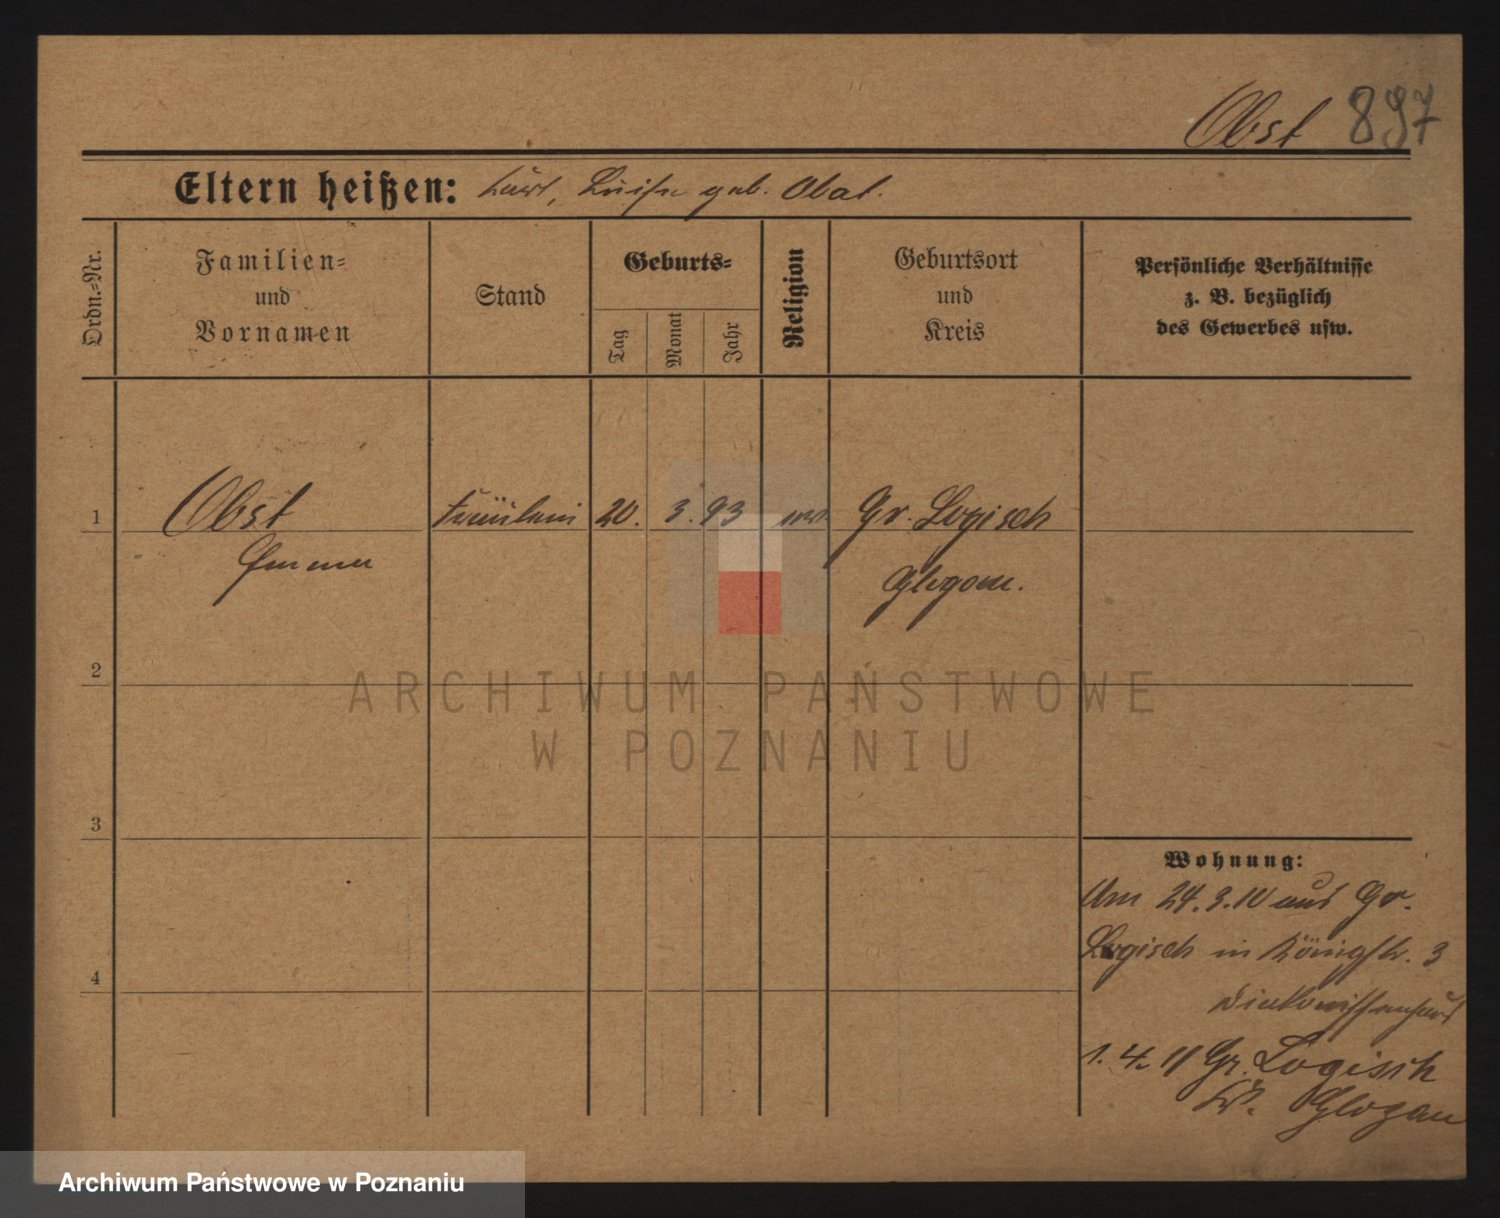 Obst 897
Eltern heißen: Luise geb. Obst.
Ordn.-Nr.
Familien-
und
Vornamen
Stand
Geburts-
Tag
Monat
Jahr
Religion
Geburtsort
und
Kreis
Persönliche Verhältnisse
z. B. bezüglich
des Gewerbes usw.
1 Obst Fräulein 20. 3. 93 Gr. Logisch
Emma Glogau.
2
ARCHIWUM PAŃSTWOWE
W POZNANIU
3
Wohnung:
Am 24.3.10 aus Gr.
Logisch in Königstr. 3
Diakonissenhaus
4
1. 4. 11 Gr. Logisch
Kr. Glogau
Archiwum Państwowe w Poznaniu